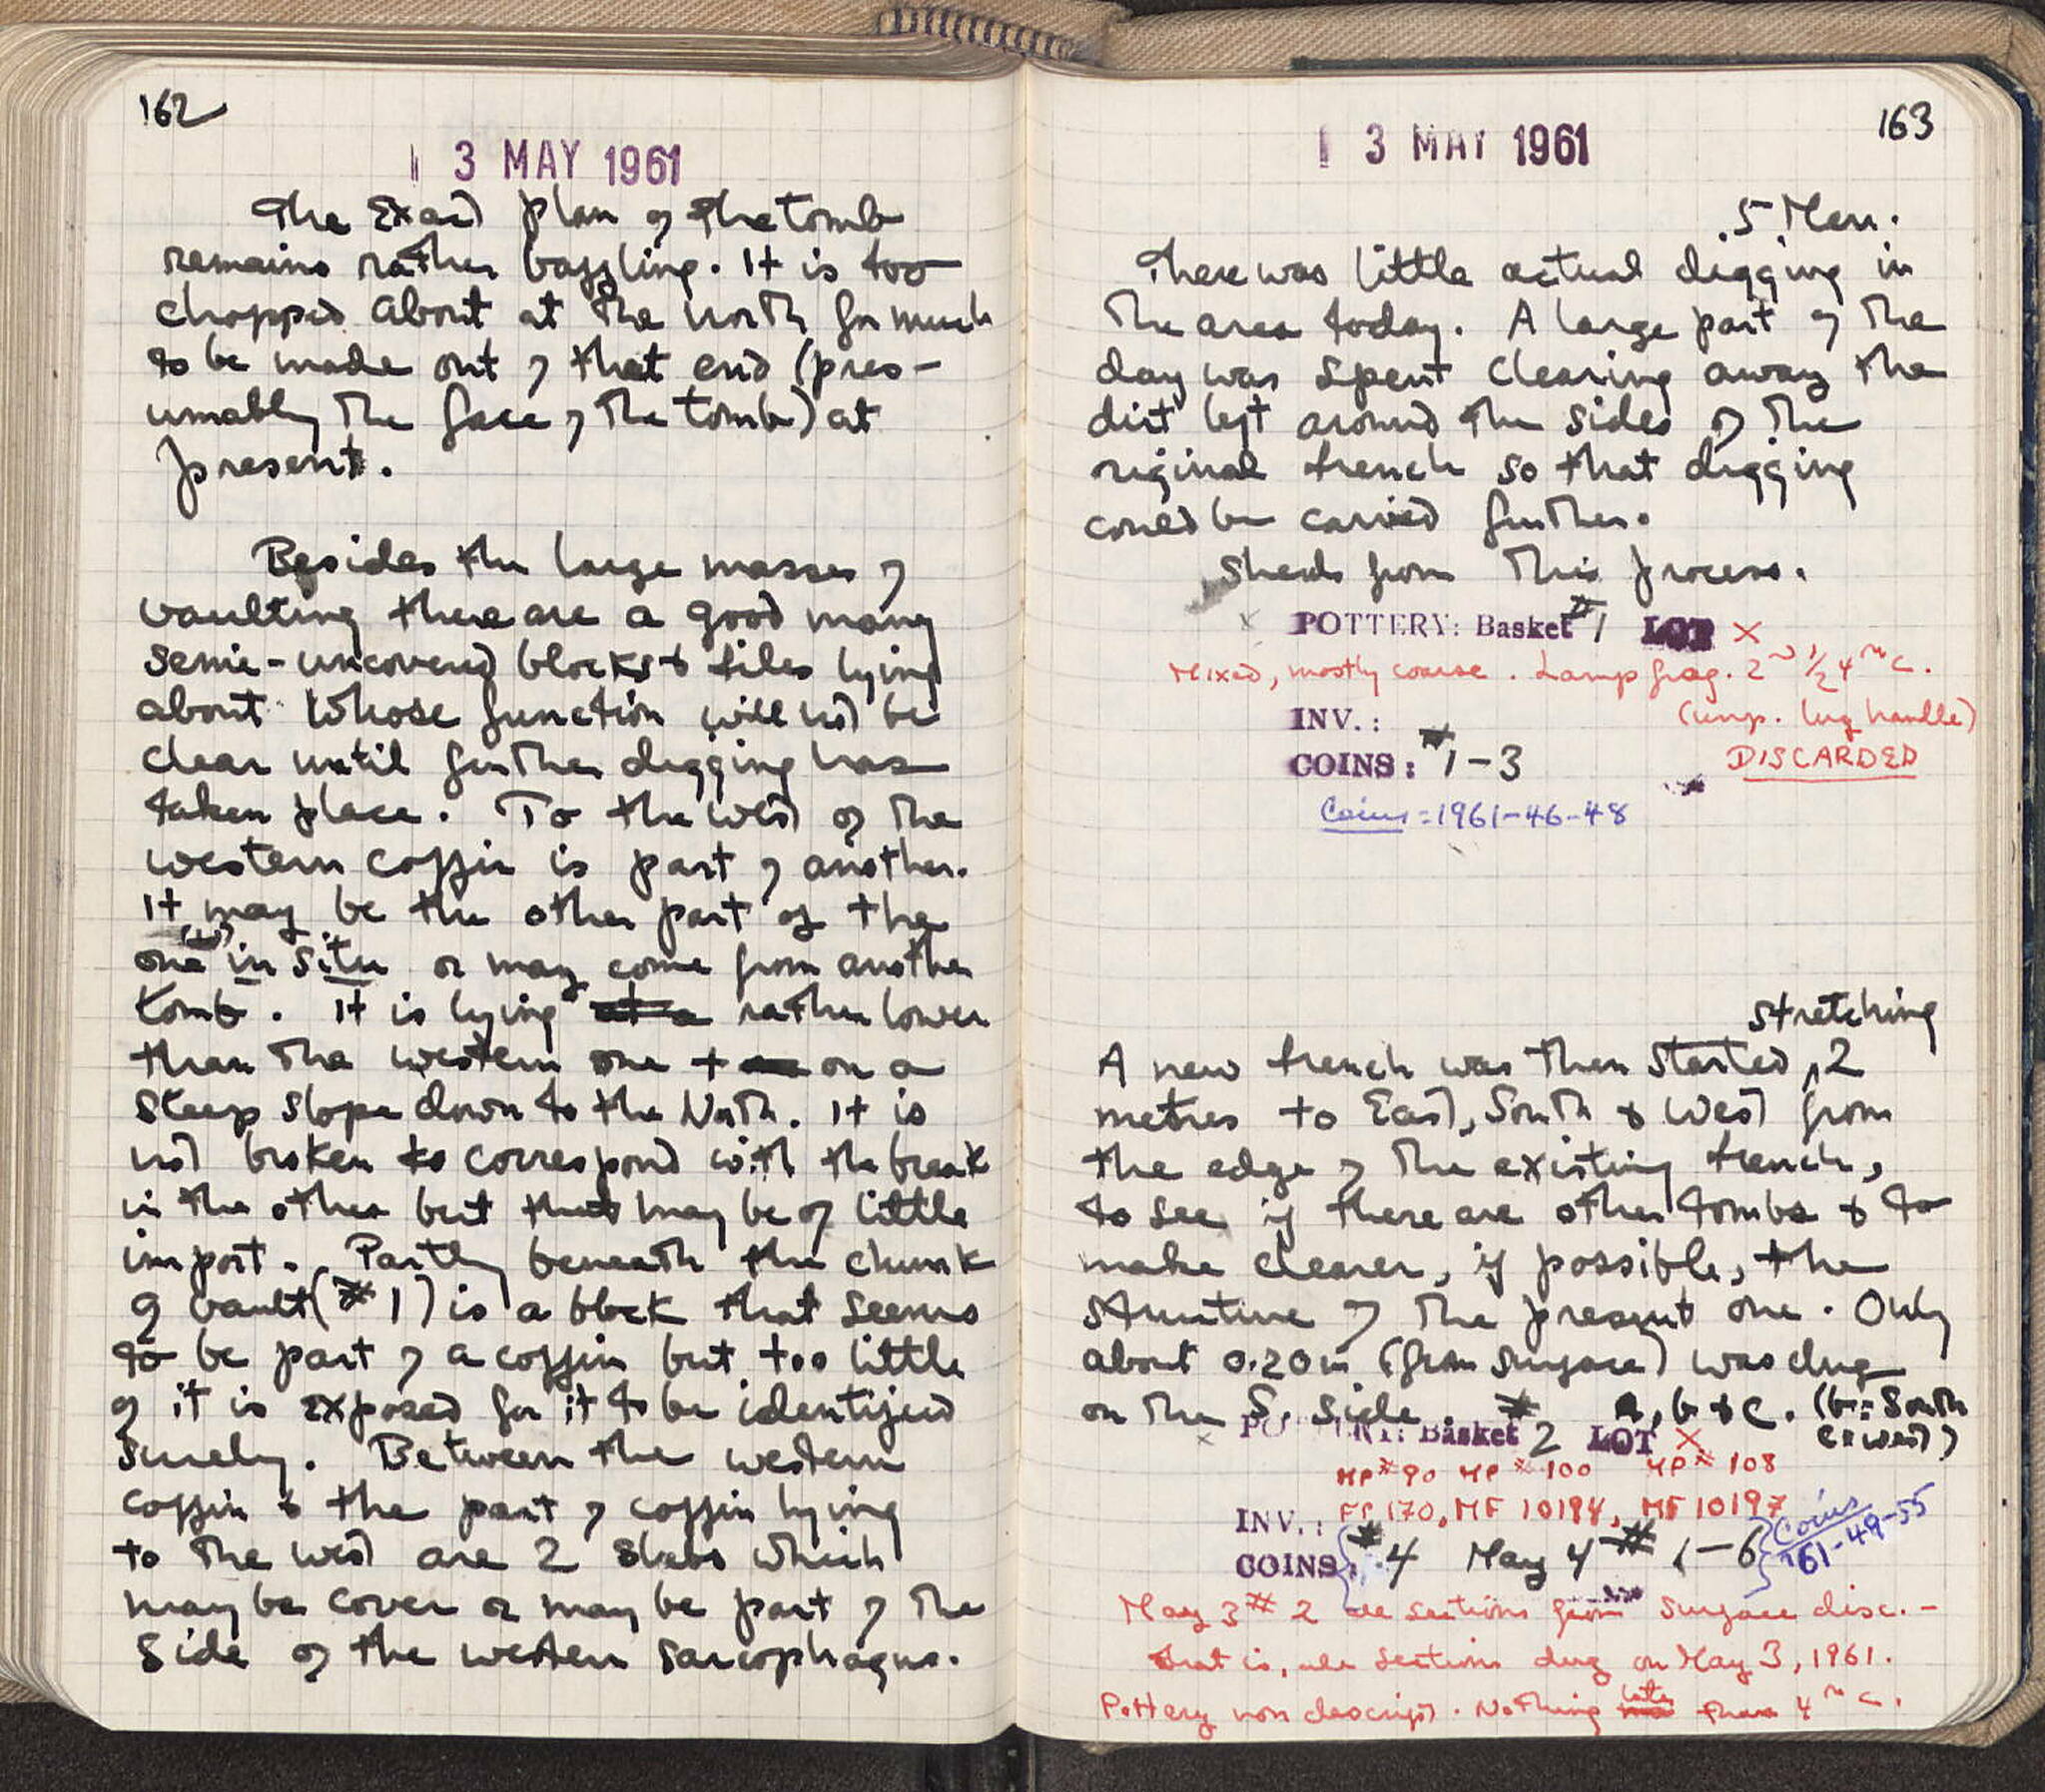 162
3 MAY 1961
The Exact plan of the tomb
remains rather baffling. It is too
chopped about at the north for much
to be made out of that end (pres-
umably the face of the tomb) at
present.
Besides the large masses of
vaulting there are a good many
semi-uncovered blocks & tiles lying
about whose function will not be
clear until further digging has
taken place. To the west of the
western coffin is part of another.
It may be the other part of the
one in situ or may come from another
tomb. It is lying at a rather lower
than the western one + on a
steep slope down to the North. It is
not broken to correspond with the break
in the other but that may be of little
import. Partly beneath the chunk
of vault (#1) is a block that seems
to be part of a coffin but too little
of it is exposed for it to be identified
surely. Between the western
coffin & the part of coffin lying
to the west are 2 slabs which
may be cover or may be part of the
side of the western sarcophagus.
163
3 MAY 1961
5 Men.
There was little actual digging in
the area today. A large part of the
day was spent clearing away the
dirt left around the sides of the
original trench so that digging
could be carried further.
Sherds from this process.
POTTERY: Basket #1 LOT X
Mixed, mostly coarse. Lamp frag. 2nd 1/2 4th c.
(unp. lug handle)
INV.:
DISCARDED
COINS: #1-3
Coins = 1961-46-48
stretching
A new trench was then started, 2
metres to East, South & West from
the edge of the existing trench,
to see if there are other tombs & to
make clearer, if possible, the
structure of the present one. Only
about 0.20m (from surface) was dug
on the S. side. a, b & c. (b = South
c = west)
POTTERY: Basket #2 LOT X
MP #90 MP #100 MP #108
INV.: FP 170, MF 10194, MF 10197
COINS: #4 May 4 #1-6 Coins
'61-49-55
May 3 #2 all sections from surface disc. -
that is, all sections dug on May 3, 1961.
Pottery non descript. Nothing later than 4th c.